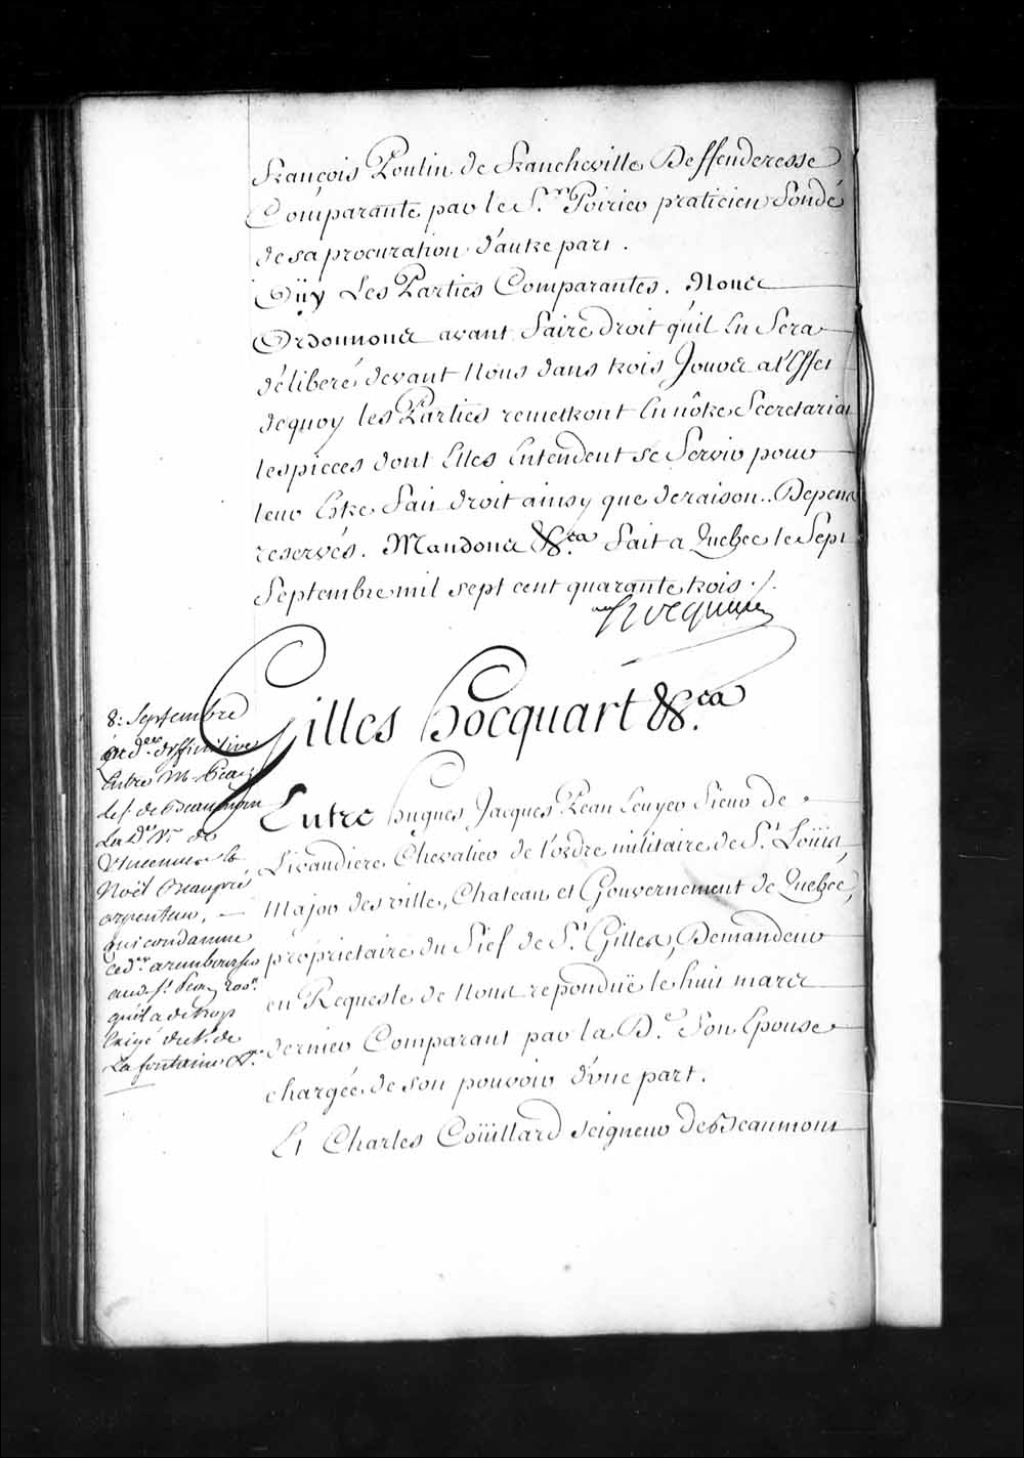 François Poulin de Francheville Deffenderesse
Comparante par le S.r Poirier praticien fondé
de sa procuration d'autre part.
Oüy Les Parties Comparantes. Nous
Ordonnons avant faire droit qu'il En Sera
délibéré devant Nous dans trois Jours a l'Effet
dequoy les Parties remettront En nôtre Secretariat
les pieces dont Elles Entendent se Servir pour
leur Estre fait droit ainsy que de raison. Depens
reservés. Mandons &.ca fait a Quebec le Sept
Septembre mil sept cent quarante trois ./.
Hocquart
Gilles hocquart &.ca
8: Septembre
ord.ce deffinitive
Entre M. Pean
le s. de Beaumont
La D.e V.e de
Vincennes &
Noël Beaupré
arpenteur, —
qui condamne
ced.er a rembourser
aud. s.r Pean 200.
qu'il a de trop
Exigé du S. de
La fontaine &.
Entre hugues Jacques Pean Ecuyer Sieur de
Livaudiere Chevalier de l'ordre militaire de S.t Loüis,
Major des ville, Chateau et Gouvernement de Quebec,
proprietaire du fief de S.t Gilles, Demandeur
en Requeste de Nous repondüe le huit mars
dernier Comparant par la D.e Son Epouse
chargée de son pouvoir d'une part.
Et Charles Coüillard seigneur de Beaumont